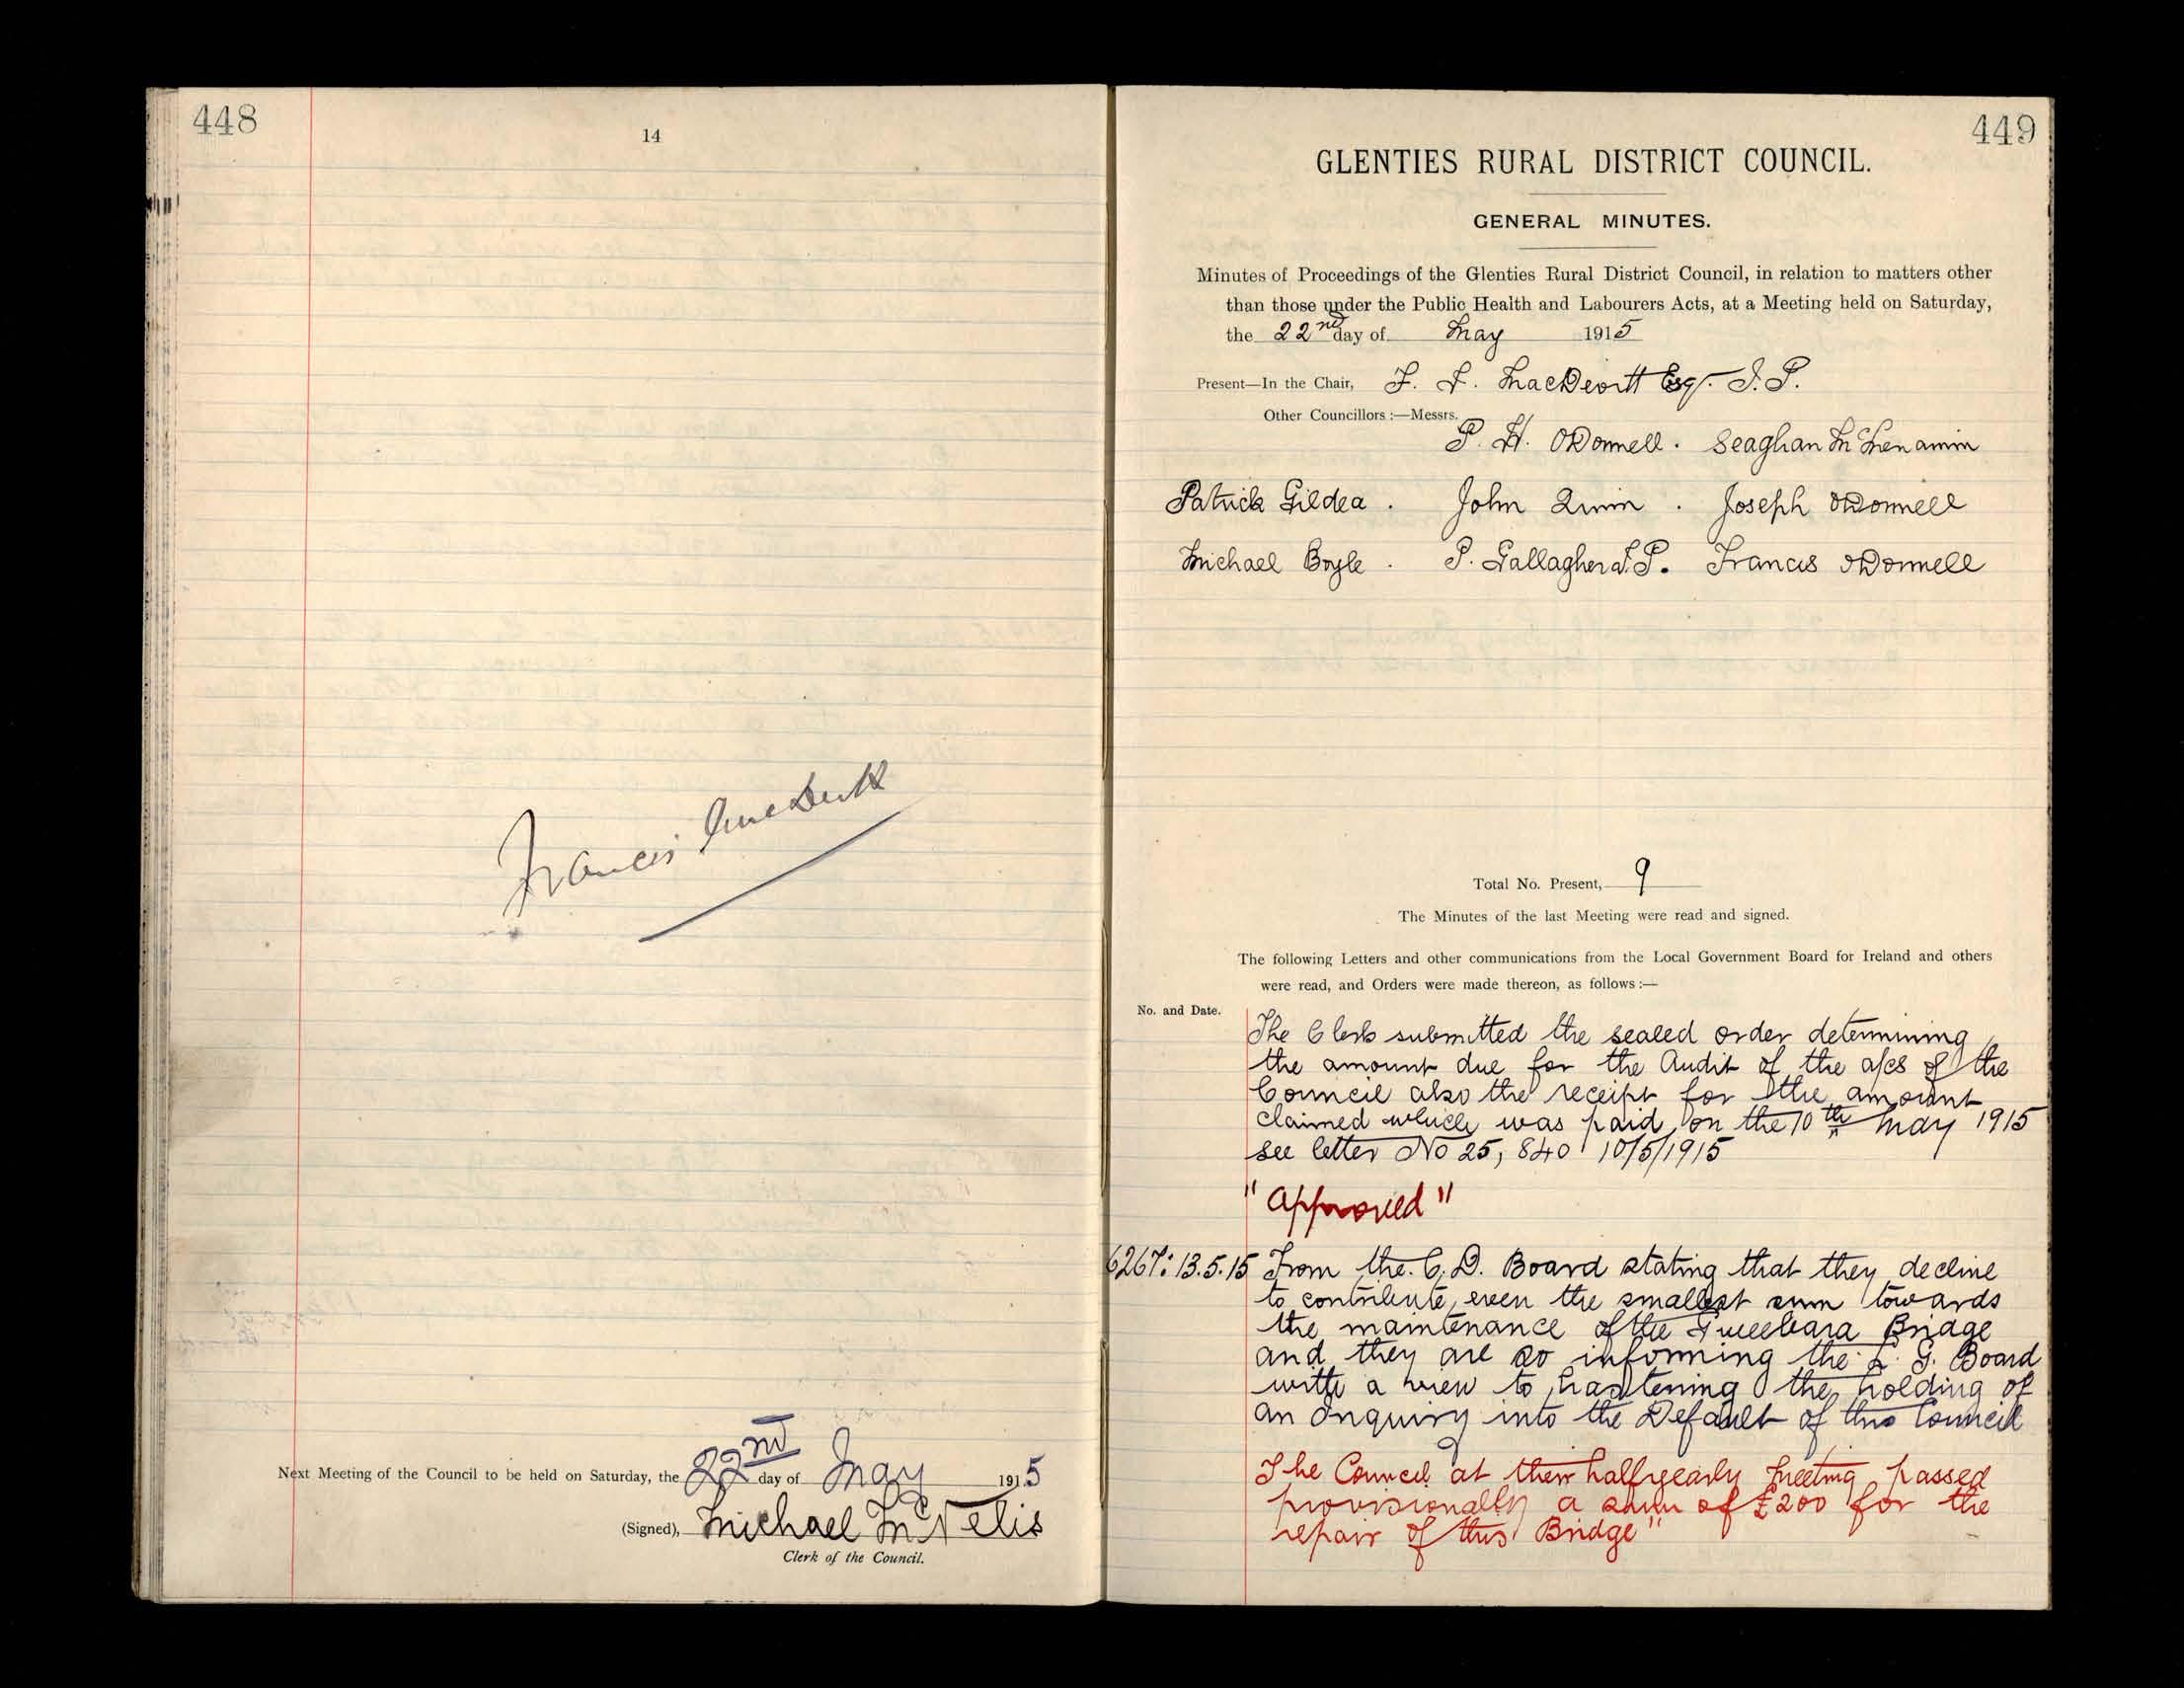 448
14
Francis
Next Meeting of the Council to be held on Saturday, the 22nd day of May 1915
(Signed), Michael McNelis
Clerk of the Council.
449
GLENTIES RURAL DISTRICT COUNCIL.
GENERAL MINUTES.
Minutes of Proceedings of the Glenties Rural District Council, in relation to matters other
than those under the Public Health and Labourers Acts, at a Meeting held on Saturday,
the 22nd day of May 1915
Present—In the Chair, F. J. MacDevitt Esq. J.P.
Other Councillors :—Messrs.
P. H. ODonnell . Seaghan McMenamin
Patrick Gildea . John Quinn . Joseph ODonnell
Michael Boyle . P. Gallagher J.P. Francis ODonnell
Total No. Present, 9
The Minutes of the last Meeting were read and signed.
The following Letters and other communications from the Local Government Board for Ireland and others
were read, and Orders were made thereon, as follows :—
No. and Date.
The Clerk submitted the sealed order determining
the amount due for the Audit of the a/cs of the
Council also the receipt for the amount
claimed which was paid on the 10th May 1915
see letter No 25,840 10/5/1915
"Approved"
6267: 13.5.15 From the C.D. Board stating that they decline
to contribute, even the smallest sum towards
the maintenance of the Gweebara Bridge
and they are so informing the L. G. Board
with a view to hastening the holding of
an Inquiry into the Default of this Council
The Council at their half yearly meeting passed
provisionally a sum of £200 for the
repair of this Bridge"